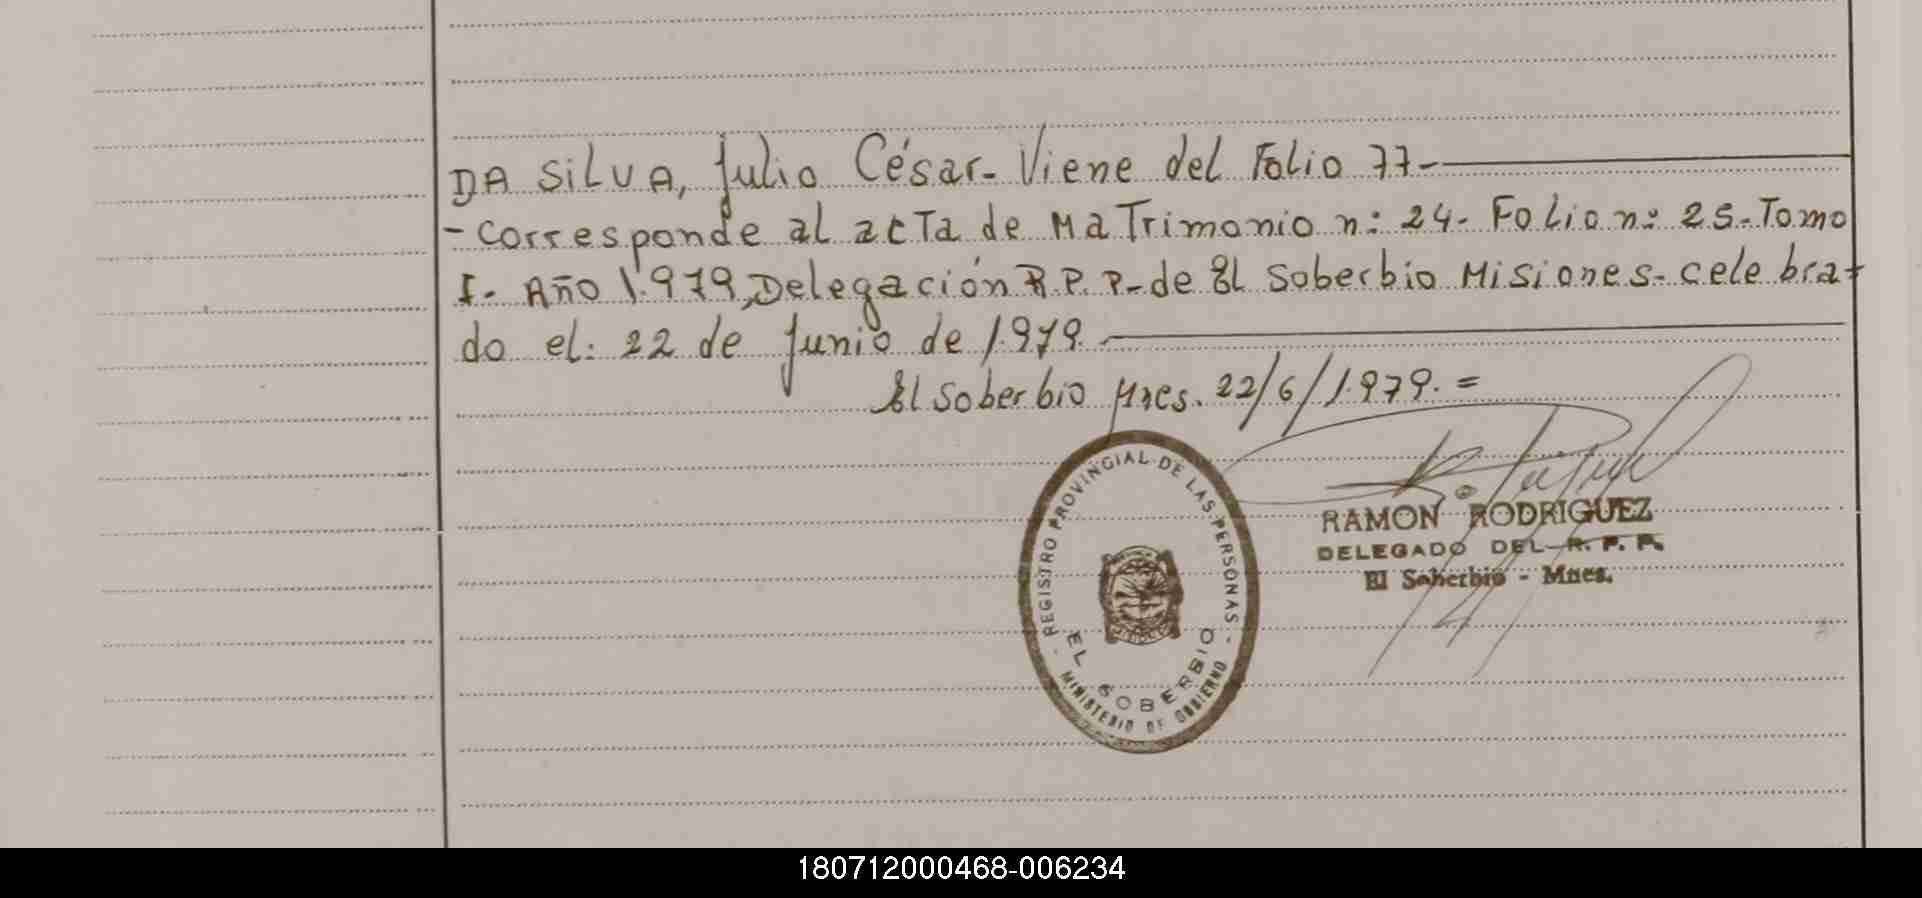 DA SILVA, Julio César - Viene del Folio 77 -
- Corresponde al acta de Matrimonio n: 24 - Folio n: 25 - Tomo
I - Año 1.979, Delegación R.P.P - de El Soberbio Misiones - celebra-
do el: 22 de Junio de 1.979.
El Soberbio Mnes. 22/6/1.979. =
REGISTRO PROVINCIAL DE LAS PERSONAS
EL SOBERBIO
MINISTERIO DE GOBIERNO
RAMON RODRIGUEZ
DELEGADO DEL R. P. P.
El Soberbio - Mnes.
180712000468-006234